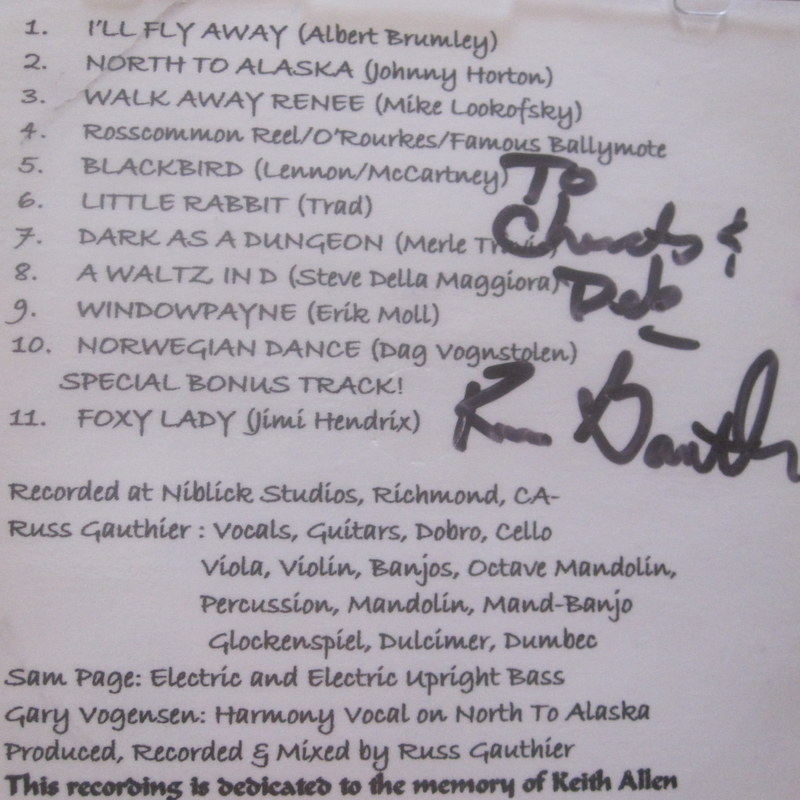 1. I'LL FLY AWAY (Albert Brumley)
2. NORTH TO ALASKA (Johnny Horton)
3. WALK AWAY RENEE (Mike Lookofsky)
4. Rosscommon Reel/O'Rourkes/Famous Ballymote
5. BLACKBIRD (Lennon/McCartney)
6. LITTLE RABBIT (Trad)
7. DARK AS A DUNGEON (Merle Travis)
8. A WALTZ IN D (Steve Della Maggiora)
9. WINDOWPAYNE (Erik Moll)
10. NORWEGIAN DANCE (Dag Vognstolen)
SPECIAL BONUS TRACK!
11. FOXY LADY (Jimi Hendrix)
To
&
Deb
Recorded at Niblick Studios, Richmond, CA-
Russ Gauthier : Vocals, Guitars, Dobro, Cello
Viola, Violin, Banjos, Octave Mandolin,
Percussion, Mandolin, Mand-Banjo
Glockenspiel, Dulcimer, Dumbec
Sam Page: Electric and Electric Upright Bass
Gary Vogensen: Harmony Vocal on North To Alaska
Produced, Recorded & Mixed by Russ Gauthier
This recording is dedicated to the memory of Keith Allen